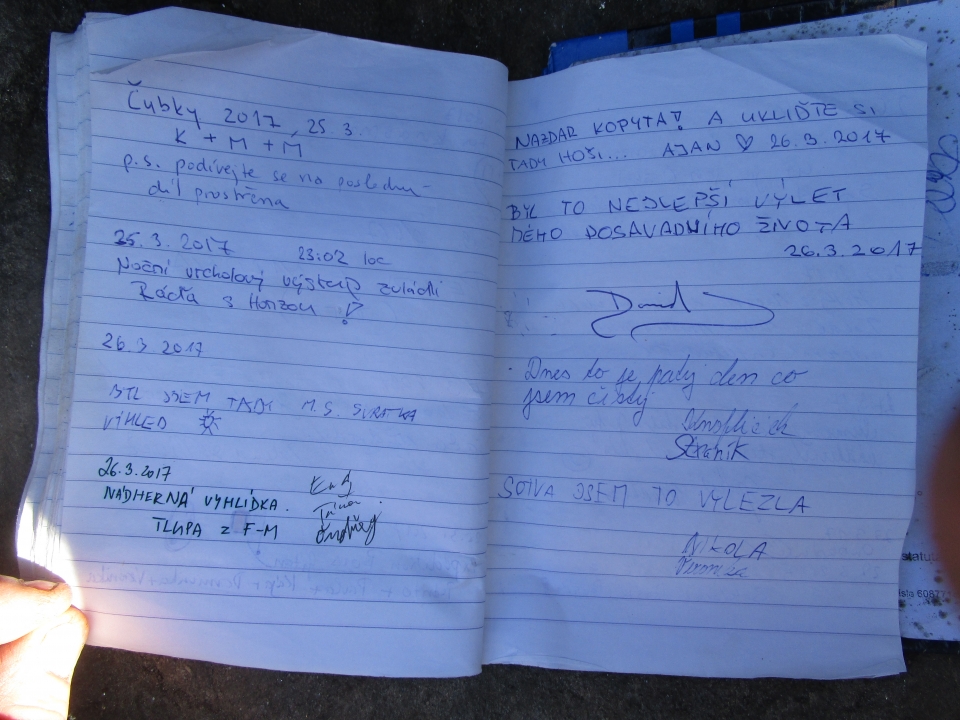 Čubky 2017, 25 3.
K + M + M
p.s. podívejte se na poslední
díl prostřena
25. 3. 2017 23:02 loc
Noční vrcholový výstup zvládli
Ráďa s Honzou !
26.3 2017
BYL JSEM TADY M.S. SVRATKA
VÝHLED
26.3.2017
NÁDHERNÁ VYHLÍDKA.
TLUPA Z F-M
NAZDAR KOPYTA! A UKLIĎTE SI
TADY HOŠI... AJAN ♡ 26.3.2017
BYL TO NEJLEPŠÍ VÝLET
MÉHO DOSAVADNÍHO ŽIVOTA
26.3.2017
David
Dnes to je pátý den co
jsem čistý
Straník
SOTVA JSEM TO VYLEZLA
NIKOLA
statut
60877